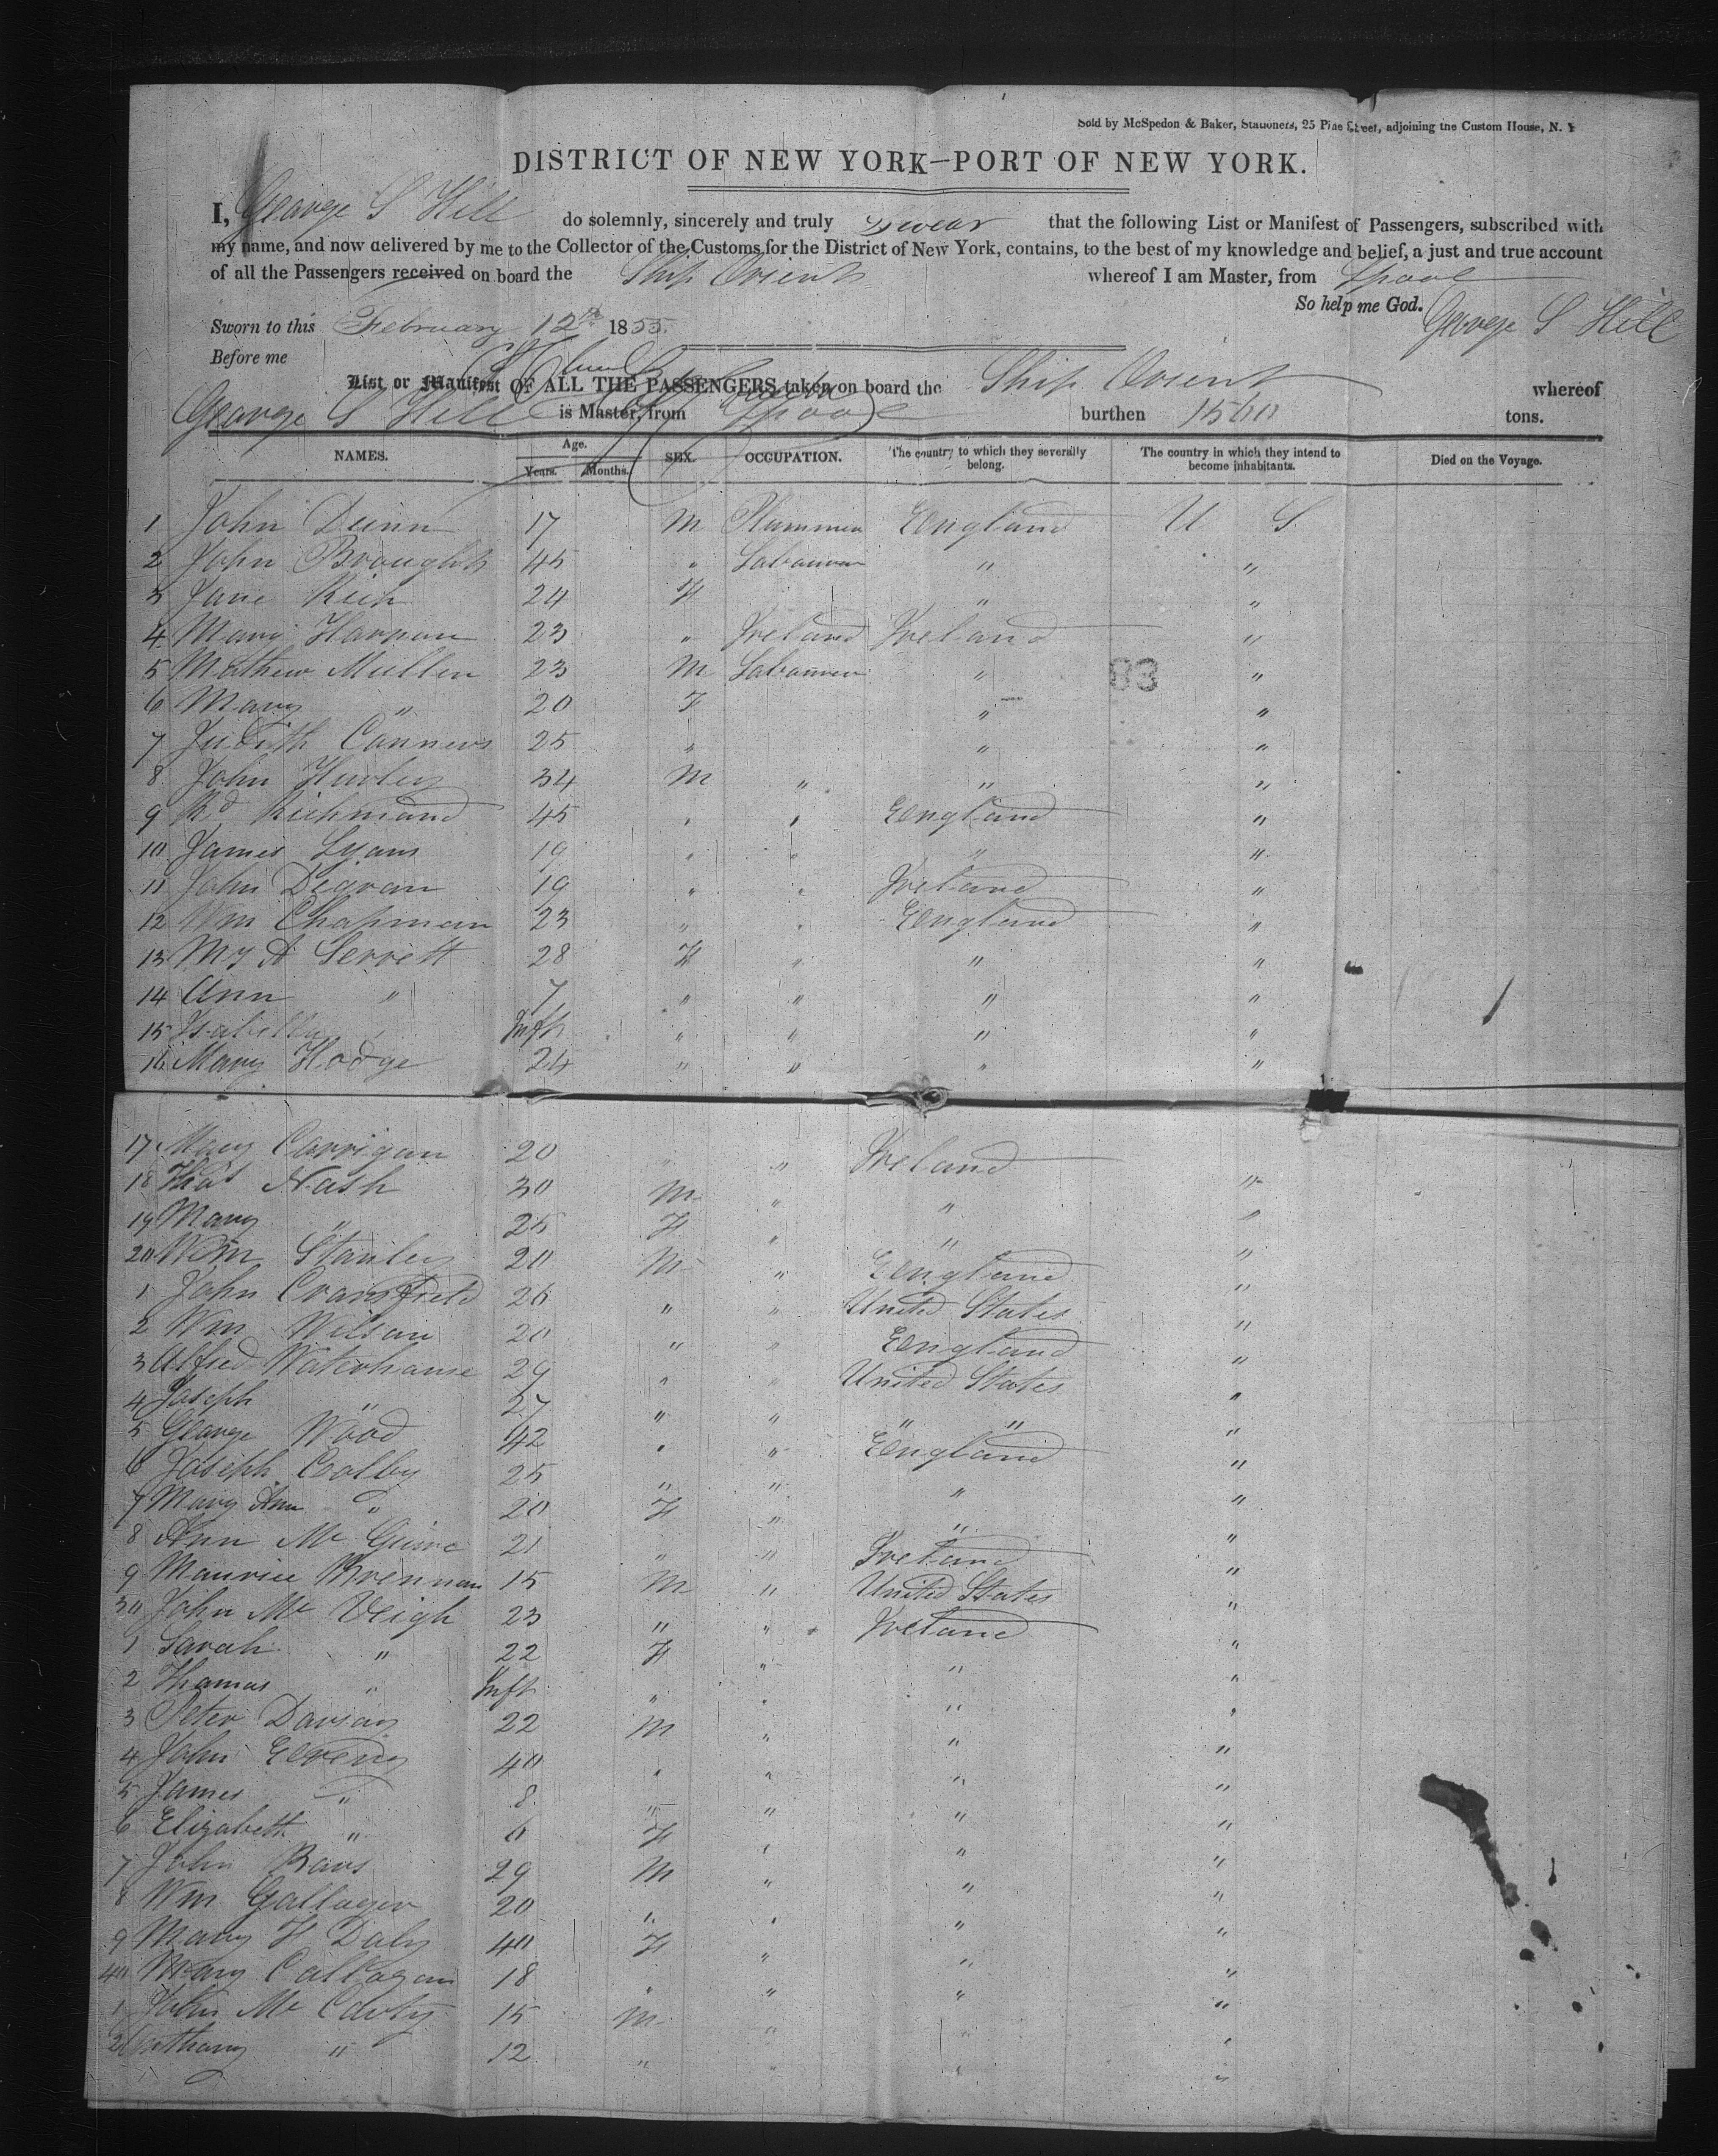 Sold by McSpedon & Baker, Stationers, 25 Pine Street, adjoining the Custom House, N. Y
DISTRICT OF NEW YORK—PORT OF NEW YORK.
I, George S Hill do solemnly, sincerely and truly swear that the following List or Manifest of Passengers, subscribed with
my name, and now delivered by me to the Collector of the Customs for the District of New York, contains, to the best of my knowledge and belief, a just and true account
of all the Passengers received on board the Ship Orient whereof I am Master, from Lpool
So help me God. George S Hill
Sworn to this February 12th 1855.
Before me
List or Manifest OF ALL THE PASSENGERS taken on board the Ship Orient whereof
George S Hill is Master, from Lpool burthen 1560 tons.
NAMES. Age. Years. Months. SEX. OCCUPATION. The country to which they severally belong. The country in which they intend to become inhabitants. Died on the Voyage.
1 John Dunn 17 M England U S
2 John 45 " Labourer " "
3 Jane 24 F " "
4 Mary Hannan 23 " Ireland Ireland "
5 Mathew Mullen 23 M Labourer " "
83
6 Mary " 20 F " "
7 Judith Conners 25 " " "
8 John Hurley 34 M " " "
9 Rd Richmond 45 " " England "
10 James Lyons 19 " " " "
11 John Dignan 19 " " Ireland "
12 Wm Chapman 23 " " England "
13 My A Serrett 28 F " " "
14 Ann " 7 " " " "
15 Isabella " Inft " " " "
16 Mary Hodge 24 " " " "
17 Mary Carrigan 20 " " Ireland "
18 Thos Nash 30 M " " "
19 Mary " 25 F " " "
20 Wm Stanley 20 M " England "
1 John Cransfield 26 " " United States "
2 Wm Wilson 20 " " England "
3 Alfred Waterhouse 29 " " United States "
4 Joseph " 27 " " " " "
5 George Wood 42 " " England "
6 Joseph Colby 25 " " " "
7 Mary Ann " 20 F " " "
8 Ann Mc Guire 21 " " Ireland "
9 Maurice Brennan 15 M " United States "
30 John Mc Veigh 23 " " Ireland "
1 Sarah " 22 F " " "
2 Thomas " Inft " " " "
3 Peter Davison 22 M " " "
4 John 40 " " " "
5 James " 8 " " " "
6 Elizabeth " 6 F " " "
7 John 29 M " " "
8 Wm Gallager 20 " " " "
9 Mary F Daly 40 F " " "
40 Mary Callagan 18 " " " "
1 John Mc Carty 15 M " " "
2 Anthony " 12 " " " "